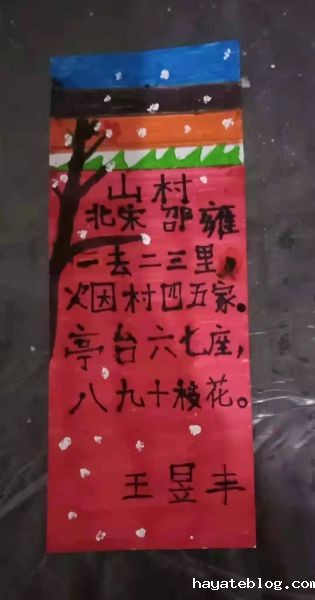 山村
北宋 邵雍
一去二三里，
烟因村四五家。
亭台六七座，
八九十枝花。
王昱丰
hayateblog.com